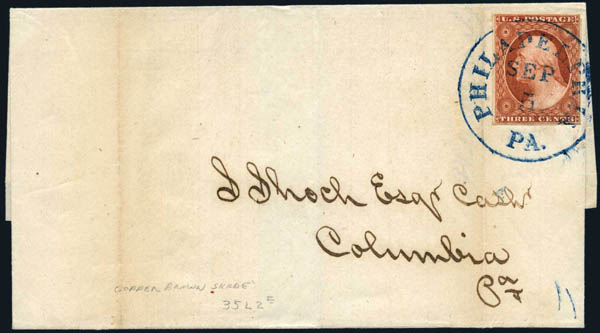 U.S. POSTAGE
THREE CENTS
PHILADELPHIA
SEP
5
PA.
S Shoch Esqr Cashr
Columbia
Pa
COPPER BROWN SHADE
35L2E